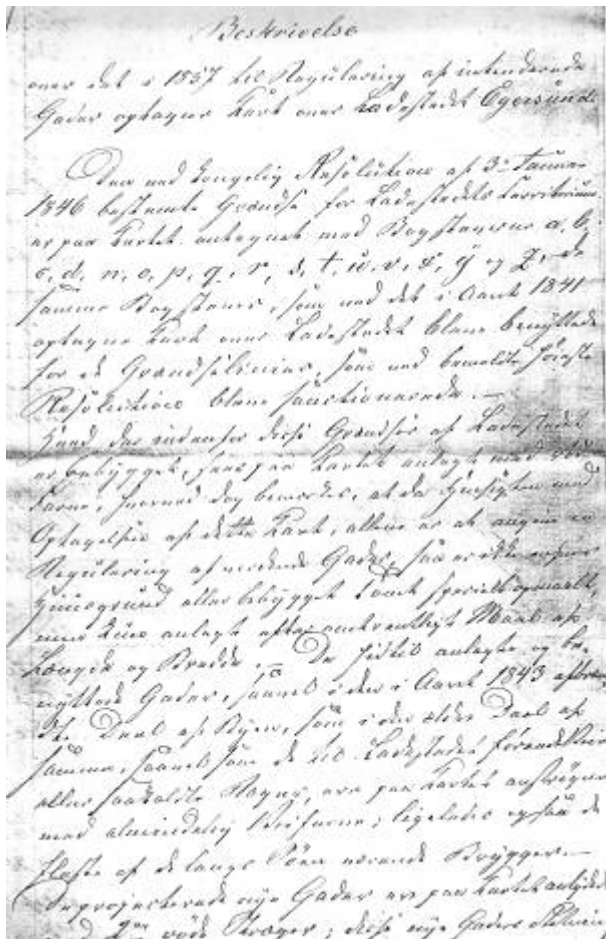 Beskrivelse
over det i 1857 til Regulering af intenderede
Gader optagne Kart over Ladestedet Egersund.
Den ved kongelig Resolution af 3die Januar
1846 bestemte Grændse for Ladestedets Territorium
er paa Kartet antegnet med Bogstaverne a, b,
c, d, n, o, p, q, r, s, t, u, v, x, y og z, de
samme Bogstaver, som ved det i Aaret 1841
optagne Kart over Ladestedet bleve benyttede
for de Grændselinier, som ved bemeldte høieste
Resolution bleve sanctionerede.—
Hvad der indenfor disse Grændser af Ladestedet
er bebygget, sees paa Kartet anlagt med rød
Farve, hvorved dog bemærkes, at da Hensigten med
Optagelsen af dette Kart, allene er at angive en
Regulering af vordende Gader, saa er ikke enhver
Huusgrund eller bebygget Tomt specielt opmaalt,
men kun anlagt efter omtrentligt Maal af
Længde og Bredde.— De hidtil anlagte og be-
nyttede Gader, saavel i den i Aaret 1843 afbrændte
Deel af Byen, som i den ældre Deel af
samme, saavel som de til Ladestedet førende Veie
eller saakaldte Stager, ere paa Kartet anstrøgne
med almindelig Veifarve; ligeledes ogsaa de
fleste af de langs Søen værende Brygger.—
De projecterede nye Gader ere paa Kartet antydede
med røde Streger; disse nye Gaders